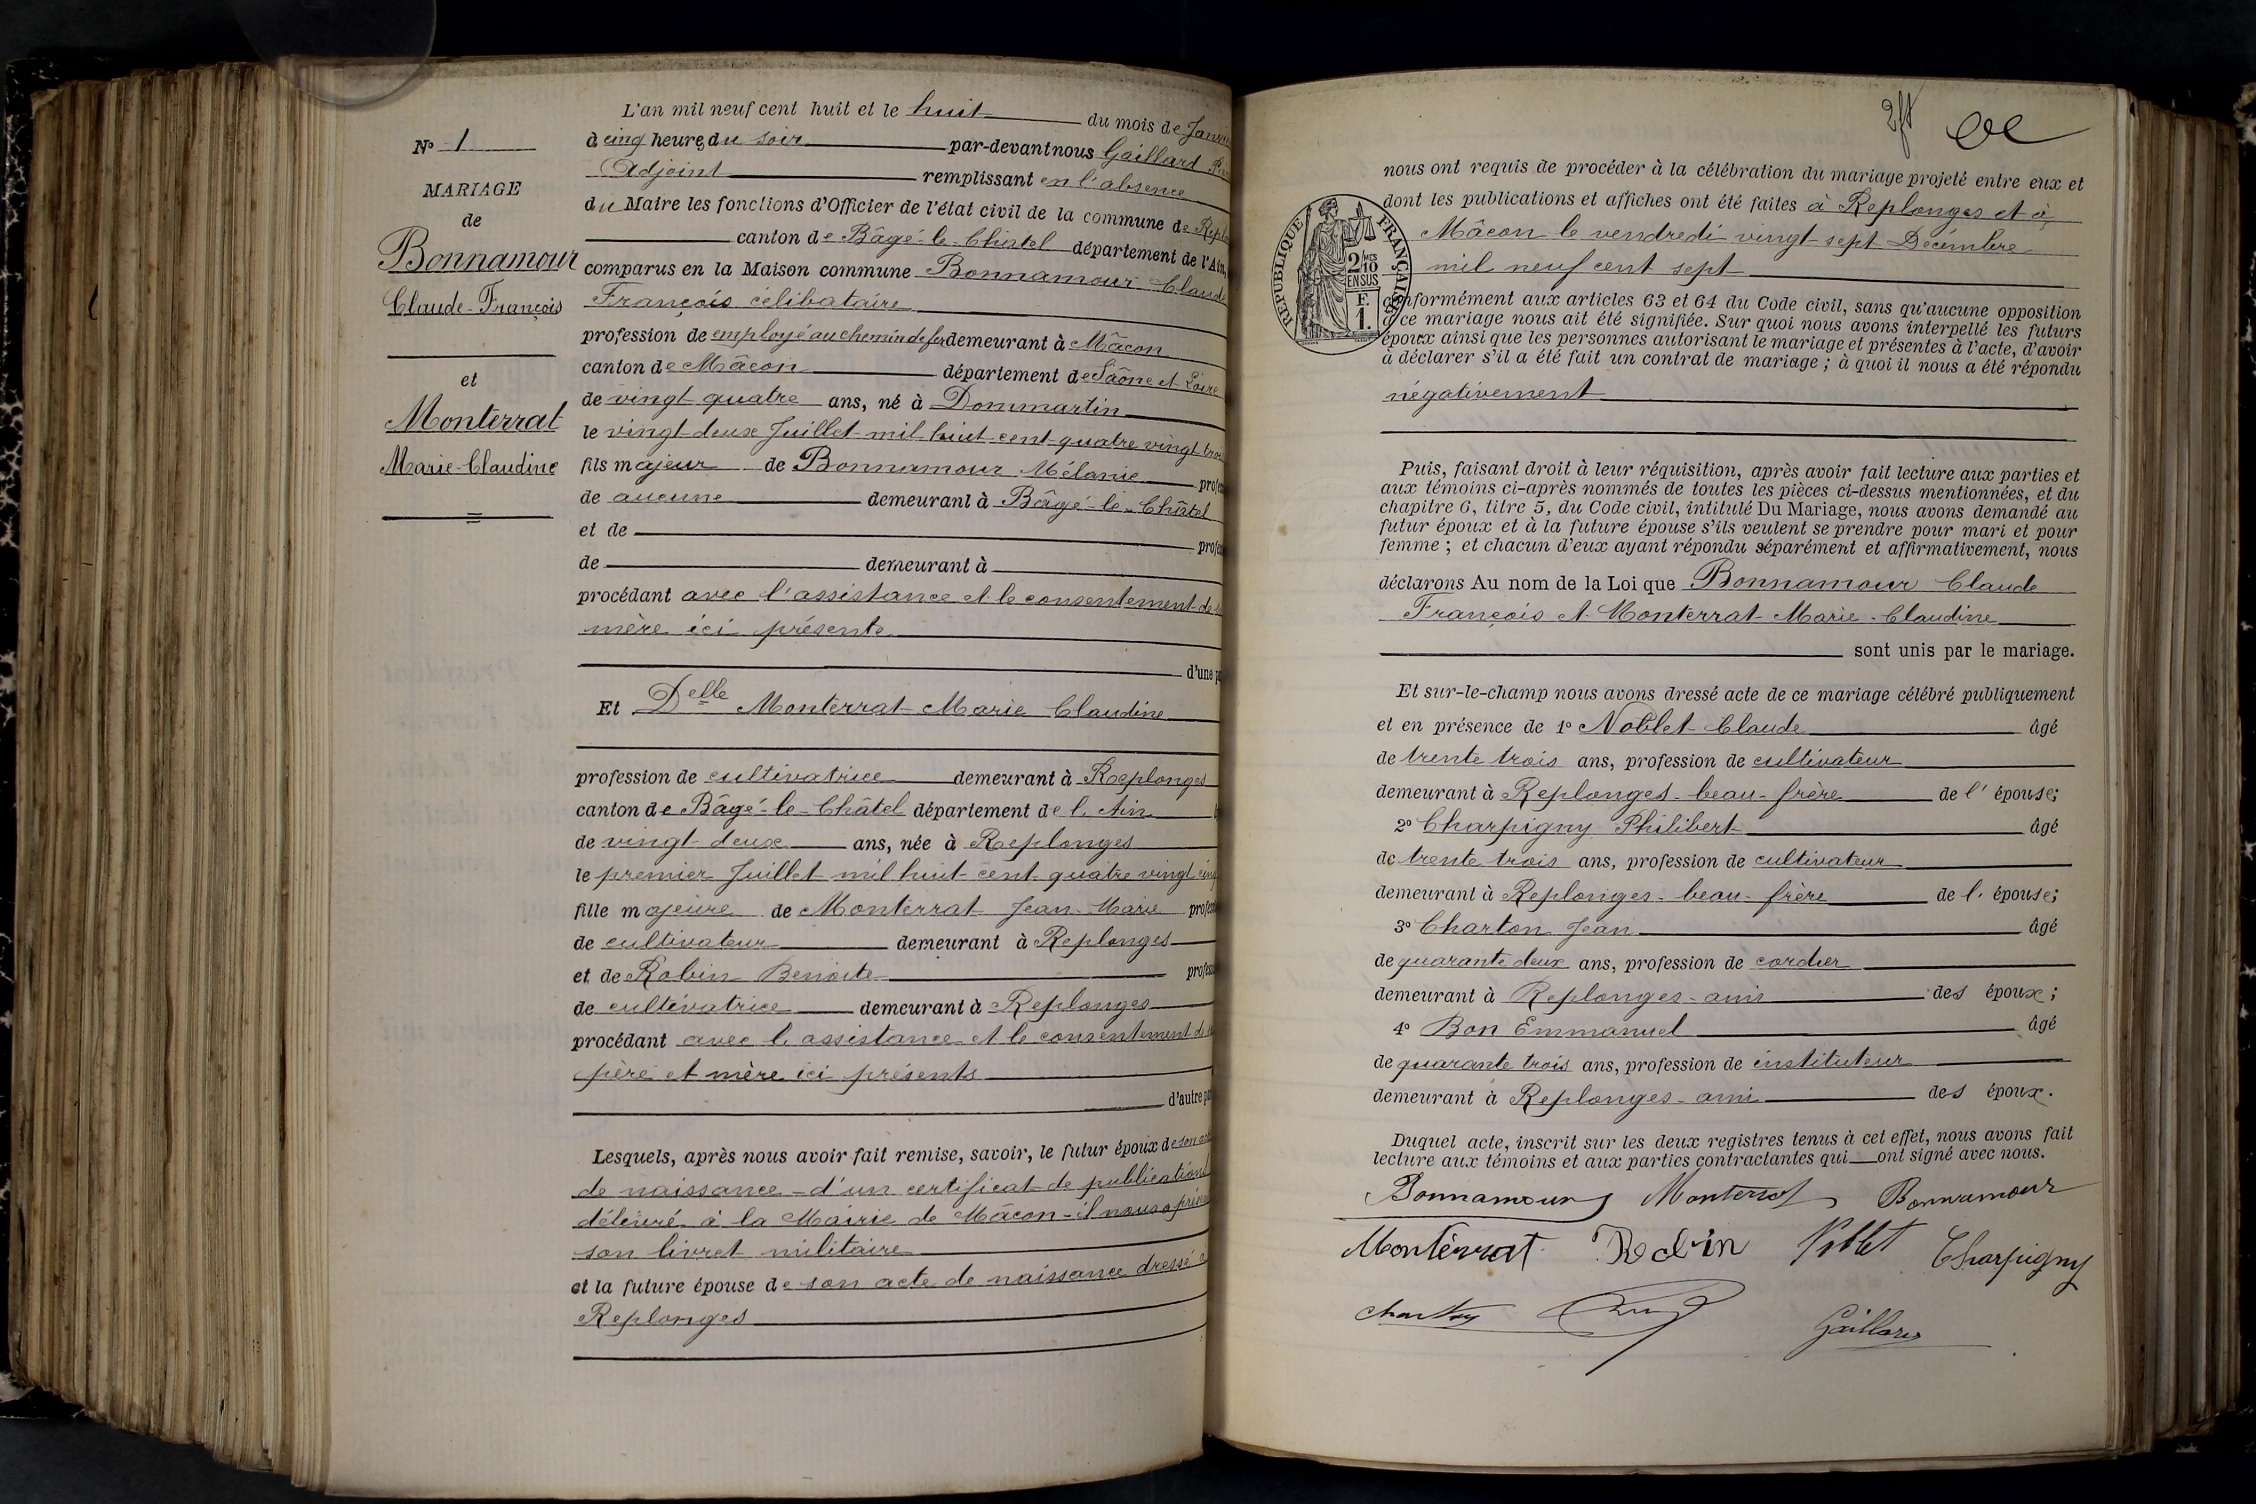 N° 1
MARIAGE
de
Bonnamour
Claude-François
et
Monterrat
Marie-Claudine
L'an mil neuf cent huit et le huit du mois de
à cinq heures du soir par-devant nous Gaillard
Adjoint remplissant en l'absence
du Maire les fonctions d'Officier de l'état civil de la commune de
canton de Bâgé-le-Châtel département de l'Ain,
comparus en la Maison commune Bonnamour Claude
François célibataire
profession de employé au chemin de fer demeurant à Mâcon
canton de Mâcon département de Saône et Loire
de vingt quatre ans, né à Dommartin
le vingt-deux Juillet mil huit cent quatre vingt trois
fils majeur de Bonnamour Mélanie
de aucune demeurant à Bâgé-le-Châtel
et de
de demeurant à
procédant avec l'assistance et le consentement de sa
mère ici présente
d'une
Et Delle Monterrat Marie Claudine
profession de cultivatrice demeurant à Replonges
canton de Bâgé-le-Châtel département de l'Ain
de vingt deux ans, née à Replonges
le premier Juillet mil huit cent quatre vingt cinq
fille majeure de Monterrat Jean-Marie
de cultivateur demeurant à Replonges
et de Robin Benoite
de cultivatrice demeurant à Replonges
procédant avec l'assistance et le consentement de
père et mère ici présents
d'autre
Lesquels, après nous avoir fait remise, savoir, le futur époux de son acte
de naissance - d'un certificat de publications
délivré à la Mairie de Mâcon - il nous a
son livret militaire
et la future épouse de son acte de naissance dressé à
Replonges
nous ont requis de procéder à la célébration du mariage projeté entre eux et
dont les publications et affiches ont été faites à Replonges et à
Mâcon le vendredi vingt-sept Décembre
mil neuf cent sept
RÉPUBLIQUE FRANÇAISE
2/10MES
EN SUS
F.
1.
conformément aux articles 63 et 64 du Code civil, sans qu'aucune opposition
à ce mariage nous ait été signifiée. Sur quoi nous avons interpellé les futurs
époux ainsi que les personnes autorisant le mariage et présentes à l'acte, d'avoir
à déclarer s'il a été fait un contrat de mariage ; à quoi il nous a été répondu
négativement
Puis, faisant droit à leur réquisition, après avoir fait lecture aux parties et
aux témoins ci-après nommés de toutes les pièces ci-dessus mentionnées, et du
chapitre 6, titre 5, du Code civil, intitulé Du Mariage, nous avons demandé au
futur époux et à la future épouse s'ils veulent se prendre pour mari et pour
femme ; et chacun d'eux ayant répondu séparément et affirmativement, nous
déclarons Au nom de la Loi que Bonnamour Claude
François et Monterrat Marie-Claudine
sont unis par le mariage.
Et sur-le-champ nous avons dressé acte de ce mariage célébré publiquement
et en présence de 1° Noblet Claude âgé
de trente trois ans, profession de cultivateur
demeurant à Replonges - beau-frère de l'épouse;
2° Charpigny Philibert âgé
de trente trois ans, profession de cultivateur
demeurant à Replonges - beau-frère de l'épouse;
3° Charton Jean âgé
de quarante deux ans, profession de cordier
demeurant à Replonges - ami des époux;
4° Bon Emmanuel âgé
de quarante trois ans, profession de instituteur
demeurant à Replonges - ami des époux.
Duquel acte, inscrit sur les deux registres tenus à cet effet, nous avons fait
lecture aux témoins et aux parties contractantes qui ont signé avec nous.
Bonnamour Monterrat Bonnamour
Monterrat Robin Noblet Charpigny
Charton Gaillard